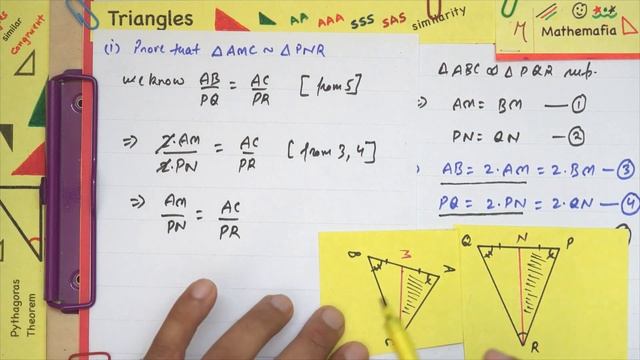 similar
congruent
Triangles
AA AAA SSS SAS similarity
Mathemafia
(i) Prove that △AMC ~ △PNR
we know AB/PQ = AC/PR [from 5]
⇒ 2·AM/2·PN = AC/PR [from 3, 4]
⇒ AM/PN = AC/PR
△ABC ∼ △PQR
⇒ AM = BM — ①
PN = QN — ②
AB = 2·AM = 2·BM — ③
PQ = 2·PN = 2·QN — ④
B
A
Q N P
R
Pythagoras
Theorem